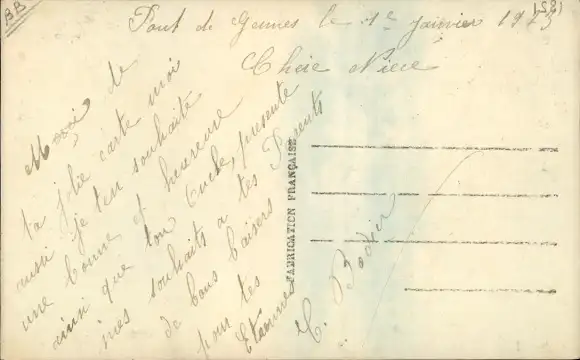 BB
1581
Pont de Gennes le 1e Janvier 1923
Chère Niece
Merci de
ta jolie carte moi
aussi je t'en souhaite
une bonne et heureuse
ainsi que ton Oncle, presente
mes souhaits a tes Parents
de bons baisers
pour tes
Etrennes
C. Bodier
FABRICATION FRANÇAISE